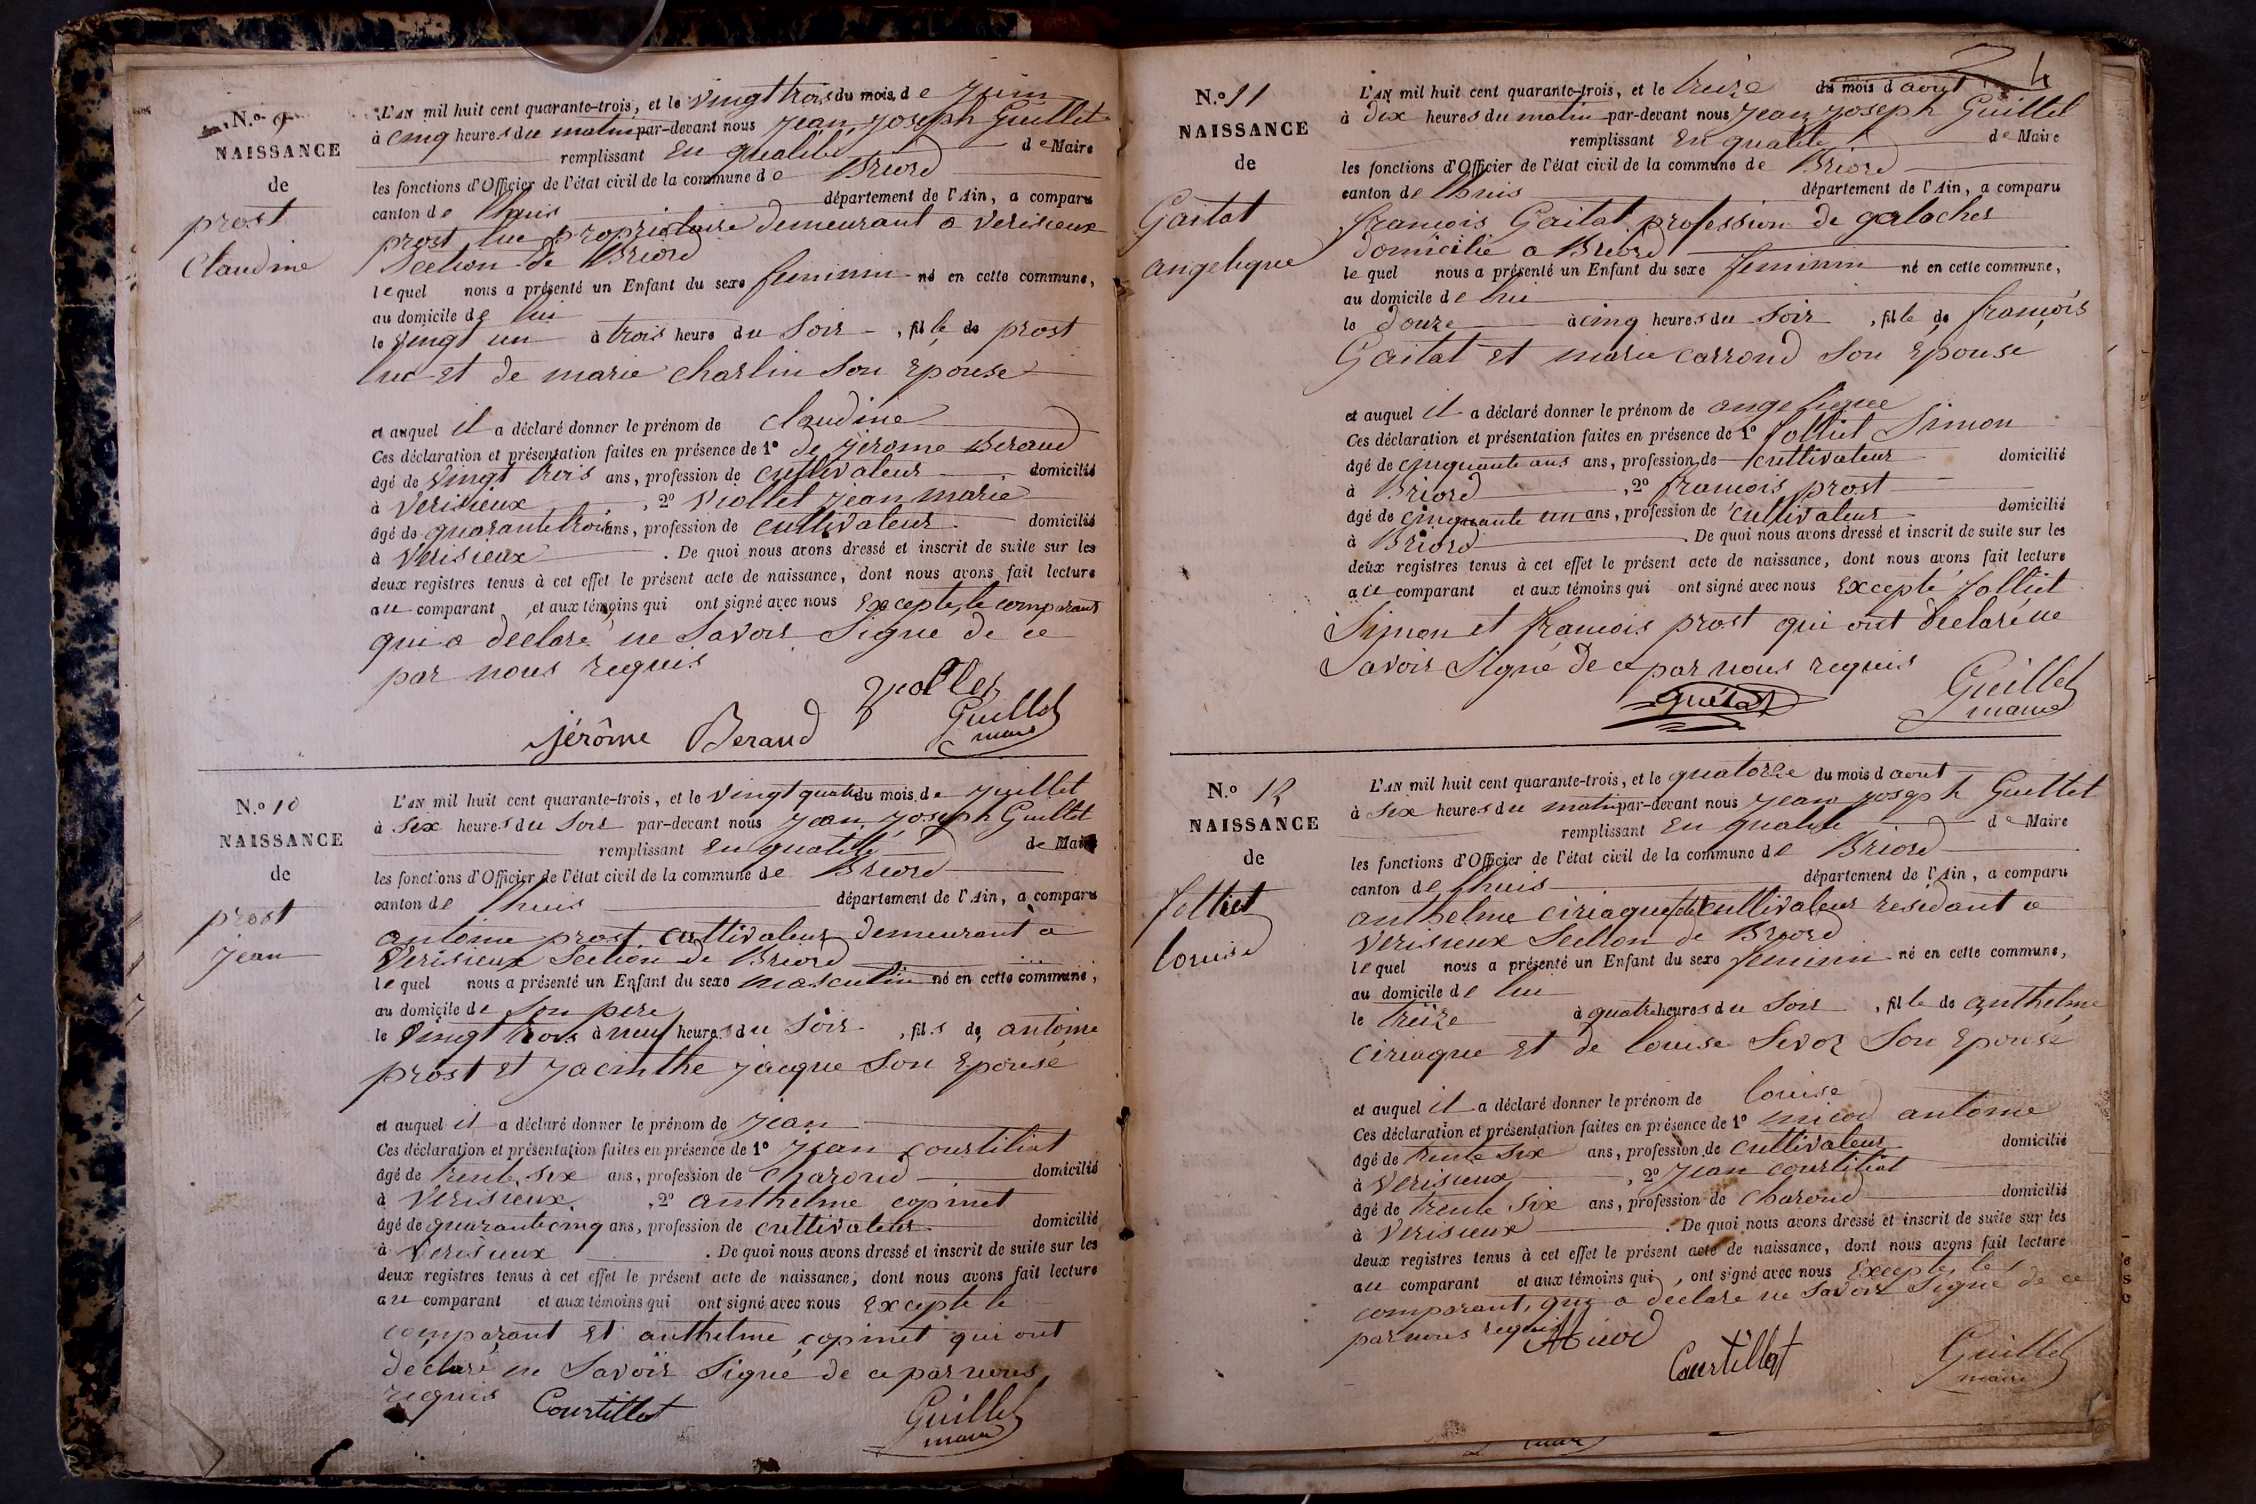 N.o 9
NAISSANCE
de
prost
Claudine
L'AN mil huit cent quarante-trois, et le vingt trois du mois de Juin
à cinq heures du matin par-devant nous Jean Joseph Guillet
remplissant En qualité de Maire
les fonctions d'Officier de l'état civil de la commune de Briord
canton de lhuis département de l'Ain, a comparu
prost luc proprietaire demeurant a verisieux
Section de Briord
lequel nous a présenté un Enfant du sexe feminin né en cette commune,
au domicile de lui
le vingt un à trois heure du Soir, fille de prost
luc et de marie charlin Son Epouse
et auquel il a déclaré donner le prénom de claudine
Ces déclaration et présentation faites en présence de 1º de jerome Beraud
âgé de vingt trois ans, profession de cultivateur domicilié
à Verisieux, 2º Viollet jean marie
âgé de quarante trois ans, profession de cultivateur domicilié
à Verisieux. De quoi nous avons dressé et inscrit de suite sur les
deux registres tenus à cet effet le présent acte de naissance, dont nous avons fait lecture
au comparant et aux témoins qui ont signé avec nous Excepté le comparant
qui a déclaré ne Savoir Signé de ce
par nous requis
jérôme Beraud
Guillet
maire
N.o 10
NAISSANCE
de
prost
jean
L'AN mil huit cent quarante-trois, et le vingt quatre du mois de juillet
à Six heures du Soir par-devant nous Jean Joseph Guillet
remplissant En qualité de Maire
les fonctions d'Officier de l'état civil de la commune de Briord
canton de lhuis département de l'Ain, a comparu
antoine prost cultivateur demeurant à
Verisieux Section de Briord
lequel nous a présenté un Enfant du sexe masculin né en cette commune,
au domicile de Son pere
le vingt trois à neuf heures du Soir, fils de antoine
prost et Jacinthe jacque Son Epouse
et auquel il a déclaré donner le prénom de jean
Ces déclaration et présentation faites en présence de 1º jean courtiliat
âgé de trente six ans, profession de Charond domicilié
à Verisieux, 2º anthelme copinet
âgé de quarante cinq ans, profession de cultivateur domicilié
à Verisieux. De quoi nous avons dressé et inscrit de suite sur les
deux registres tenus à cet effet le présent acte de naissance, dont nous avons fait lecture
au comparant et aux témoins qui ont signé avec nous Excepté le
comparant et anthelme copinet qui ont
déclaré ne Savoir Signé de ce par nous
requis
Courtillat
Guillet
maire
4
N.o 11
NAISSANCE
de
Gaitat
angelique
L'AN mil huit cent quarante-trois, et le treize du mois d'aout
à dix heures du matin par-devant nous Jean Joseph Guillet
remplissant En qualité de Maire
les fonctions d'Officier de l'état civil de la commune de Briord
canton de lhuis département de l'Ain, a comparu
francois Gaitat profession de galocher
domicilié a Briord
lequel nous a présenté un Enfant du sexe feminin né en cette commune,
au domicile de lui
le douze à cinq heures du Soir, fille de françois
Gaitat et marie carrond Son Epouse
et auquel il a déclaré donner le prénom de angelique
Ces déclaration et présentation faites en présence de 1º folliet Simon
âgé de cinquante ans ans, profession de cultivateur domicilié
à Briord, 2º francois prost
âgé de cinquante un ans, profession de cultivateur domicilié
à Briord. De quoi nous avons dressé et inscrit de suite sur les
deux registres tenus à cet effet le présent acte de naissance, dont nous avons fait lecture
au comparant et aux témoins qui ont signé avec nous Excepté folliet
Simon et francois prost qui ont déclaré ne
Savoir Signé de ce par nous requis
Guillet
maire
N.o 12
NAISSANCE
de
folliet
louise
L'AN mil huit cent quarante-trois, et le quatorze du mois d'aout
à six heures du matin par-devant nous Jean Joseph Guillet
remplissant En qualité de Maire
les fonctions d'Officier de l'état civil de la commune de Briord
canton de lhuis département de l'Ain, a comparu
anthelme ciriaque cultivateur residant a
Verisieux Section de Briord
lequel nous a présenté un Enfant du sexe feminin né en cette commune,
au domicile de lui
le treize à quatre heures du Soir, fille de anthelme
ciriaque et de louise Sevoz Son Epouse
et auquel il a déclaré donner le prénom de louise
Ces déclaration et présentation faites en présence de 1º micod antoine
âgé de trente six ans, profession de cultivateur domicilié
à Verisieux, 2º jean courtiliat
âgé de trente Six ans, profession de Charond domicilié
à Verisieux. De quoi nous avons dressé et inscrit de suite sur les
deux registres tenus à cet effet le présent acte de naissance, dont nous avons fait lecture
au comparant et aux témoins qui, ont signé avec nous Excepté le
comparant, qui a déclaré ne Savoir Signé de ce
par nous requis
Micod
Courtillat
Guillet
maire